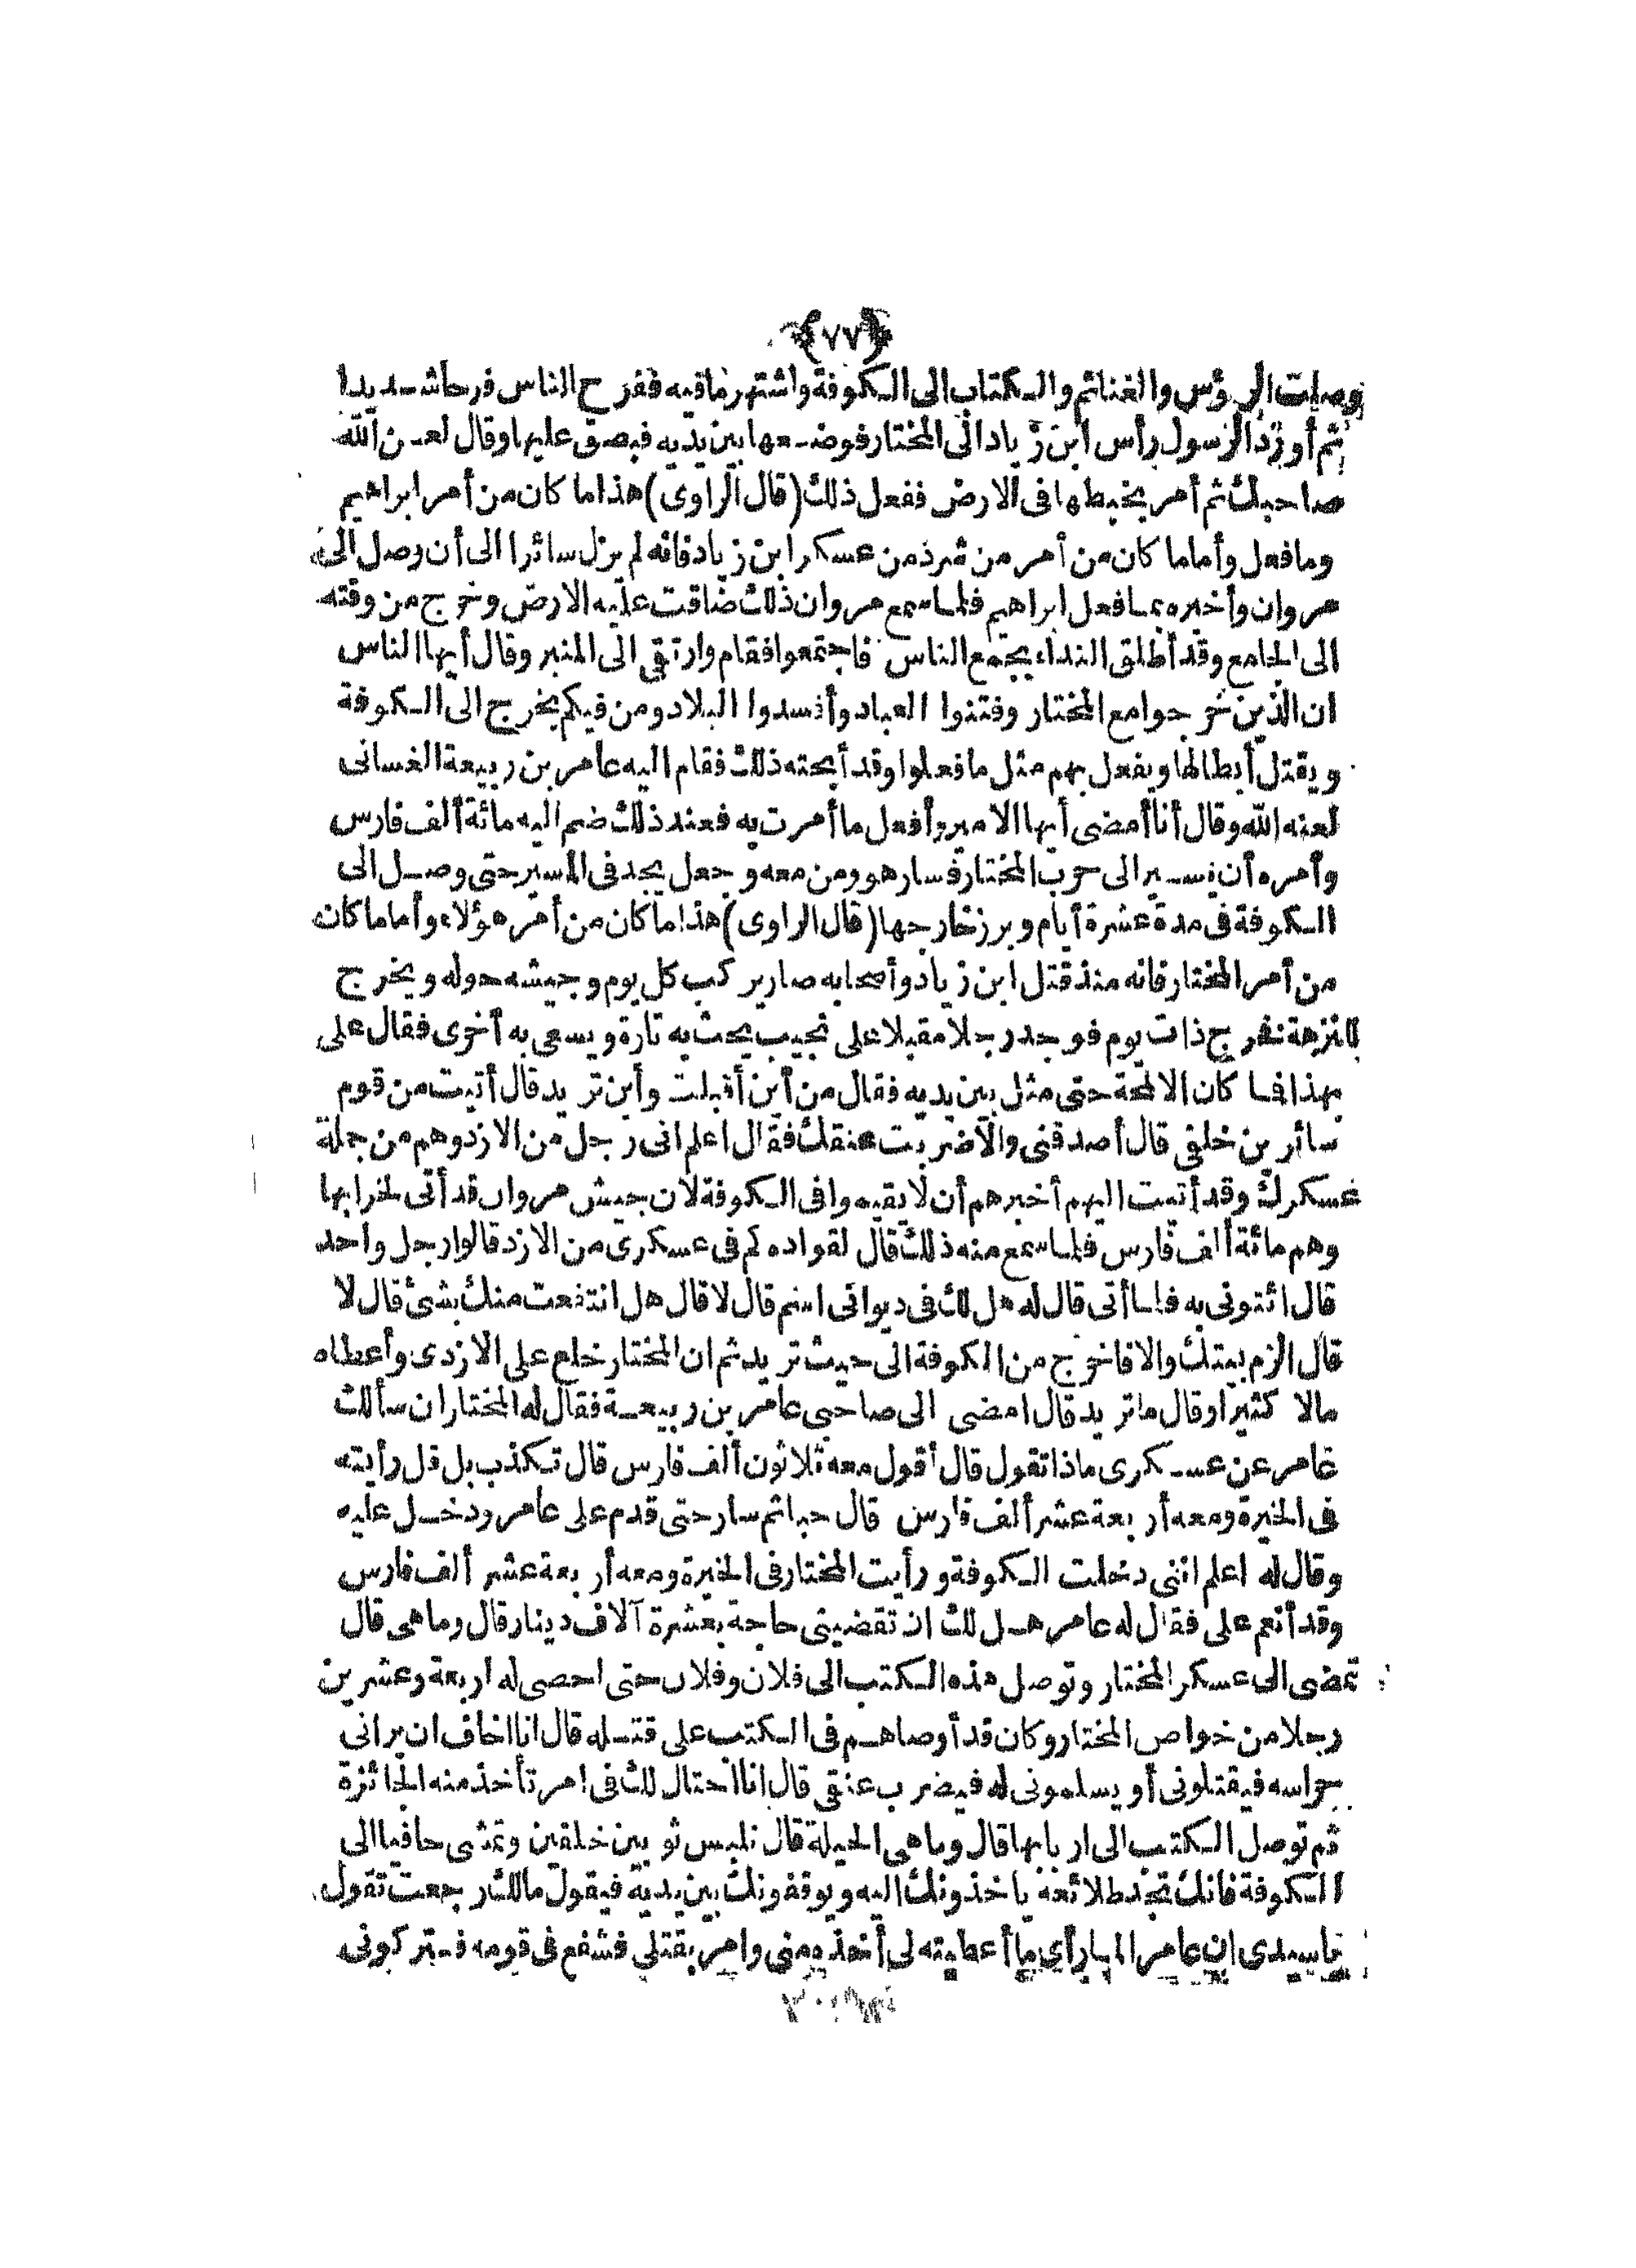 ﴿٧٧﴾
وصلت الرؤس والغنائم والكتاب الى الكوفة واشتهر ما فيه ففرح الناس فرحا شديدا
ثم أورد الرسول رأس ابن زياد الى المختار فوضعها بين يديه فبصق عليها وقال لعن الله
صاحبك ثم أمر بخيطها فى الارض ففعل ذلك (قال الراوى) هذا ما كان من أمر ابراهيم
وما فعل وأما ما كان من أمر من شرد من عسكر ابن زياد فانه لم يزل سائرا الى أن وصل الى
مروان وأخبره بما فعل ابراهيم فلما سمع مروان ذلك ضاقت عليه الارض وخرج من وقته
الى الجامع وقد أطلق النداء بجمع الناس فاجتمعوا فقام وارتقى الى المنبر وقال أيها الناس
ان الذين خرجوا مع المختار وفتنوا العباد وأفسدوا البلاد ومن فيكم يخرج الى الكوفة
ويقتل أبطالها ويفعل بهم مثل ما فعلوا وقد أبحته ذلك فقام اليه عامر بن ربيعة الغسانى
لعنه الله وقال أنا أمضى أيها الامير وأفعل ما أمرت به فعند ذلك ضم اليه مائة ألف فارس
وأمره أن يسير الى حرب المختار فسار هو ومن معه وجعل يجد فى المسير حتى وصل الى
الكوفة فى مدة عشرة أيام وبرز خارجها (قال الراوى) هذا ما كان من أمر هؤلاء وأما ما كان
من أمر المختار فانه منذ قتل ابن زياد وأصحابه صار يركب كل يوم وجيشه حوله ويخرج
للنزهة نخرج ذات يوم فوجد رجلا مقبلا على نجيب يحث به تارة ويسعى به أخرى فقال على
بهذا فما كان الا لمحة حتى مثل بين يديه فقال من أين أقبلت وأين تريد قال أتيت من قوم
سائر بن خلفى قال أصدقنى والا ضربت عنقك فقال اعلم انى رجل من الازد وهم من جملة
عسكرك وقد أتيت اليهم أخبرهم أن لا يقيموا فى الكوفة لان جيش مروان قد أتى لخرابها
وهم مائة ألف فارس فلما سمع منه ذلك قال لقواده كم فى عسكرى من الازد قالوا رجل واحد
قال ائتونى به فلما أتى قال له هل لك فى ديوانى اسم قال لا قال هل انتفعت منك بشئ قال لا
قال الزم بيتك والا فاخرج من الكوفة الى حيث تريد ثم ان المختار خلع على الازدى وأعطاه
مالا كثيرا وقال ما تريد قال امضى الى صاحبى عامر بن ربيعة فقال له المختار ان سألك
عامر عن عسكرى ماذا تقول قال أقول معه ثلاثون ألف فارس قال تكذب بل قل رأيته
فى الخيرة ومعه أربعة عشر ألف فارس قال حبا ثم سار حتى قدم على عامر ودخل عليه
وقال له اعلم اننى دخلت الكوفة ورأيت المختار فى الخيرة ومعه أربعة عشر ألف فارس
وقد أنعم على فقال له عامر هل لك ان تقضينى حاجة بعشرة آلاف دينار قال وما هى قال
تمضى الى عسكر المختار وتوصل هذه الكتب الى فلان وفلان حتى احصى له اربعة وعشرين
رجلا من خواص المختار وكان قد أوصاهم فى الكتب على قتله قال انا اخاف ان يرانى
حراسه فيقتلونى أو يسلمونى له فيضرب عنقى قال انا احتال لك فى امر تأخذ منه الجائزة
ثم توصل الكتب الى اربابها قال وما هى الحيلة قال نلبس ثوبين خلقين وتمشى حافيا الى
الكوفة فانك تجد طلائعه ياخذونك اليه ويوقفونك بين يديه فيقول مالك رجعت تقول
يا سيدى ان عامر الما رأى ما أعطيته لى أخذه منى وامر بقتلى فشفع فى قومه فتركونى